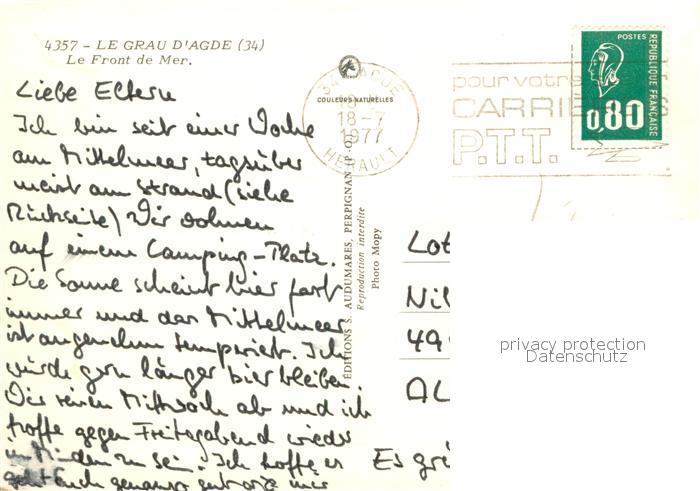 4357 - LE GRAU D'AGDE (34)
Le Front de Mer.
Liebe Eltern
Ich bin seit einer Woche
am Mittelmeer, tagsüber
meist am Strand (siehe
Rückseite) Wir wohnen
auf einem Camping-Platz.
Die Sonne scheint hier fast
immer und das Mittelmeer
ist angenehm temperiert. Ich
würde gern länger hier bleiben.
Wir reisen Mittwoch ab und ich
hoffe gegen Freitagabend wieder
in Minden zu sein. Ich hoffe es
geht Euch genauso gut wie mir
Es grü
COULEURS NATURELLES
34 AGDE
18-7
1977
HERAULT
pour votre
CARRIÈ S
P.T.T.
POSTES
REPUBLIQUE FRANÇAISE
0,80
ÉDITIONS S. AUDUMARES, PERPIGNAN (P.-O.)
Reproduction interdite
Photo Mopy
Lot
Nil
49
AL
privacy protection
Datenschutz